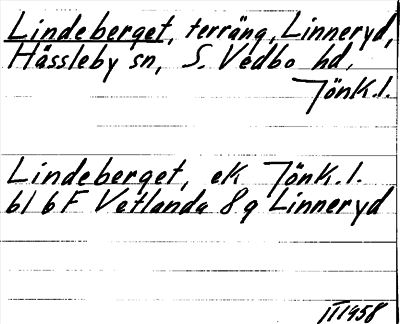 Lindeberget, terräng, Linneryd,
Hässleby sn, S. Vedbo hd,
Jönk.l.
Lindeberget, ek Jönk.l.
bl 6F Vetlanda 8g Linneryd
III 1958